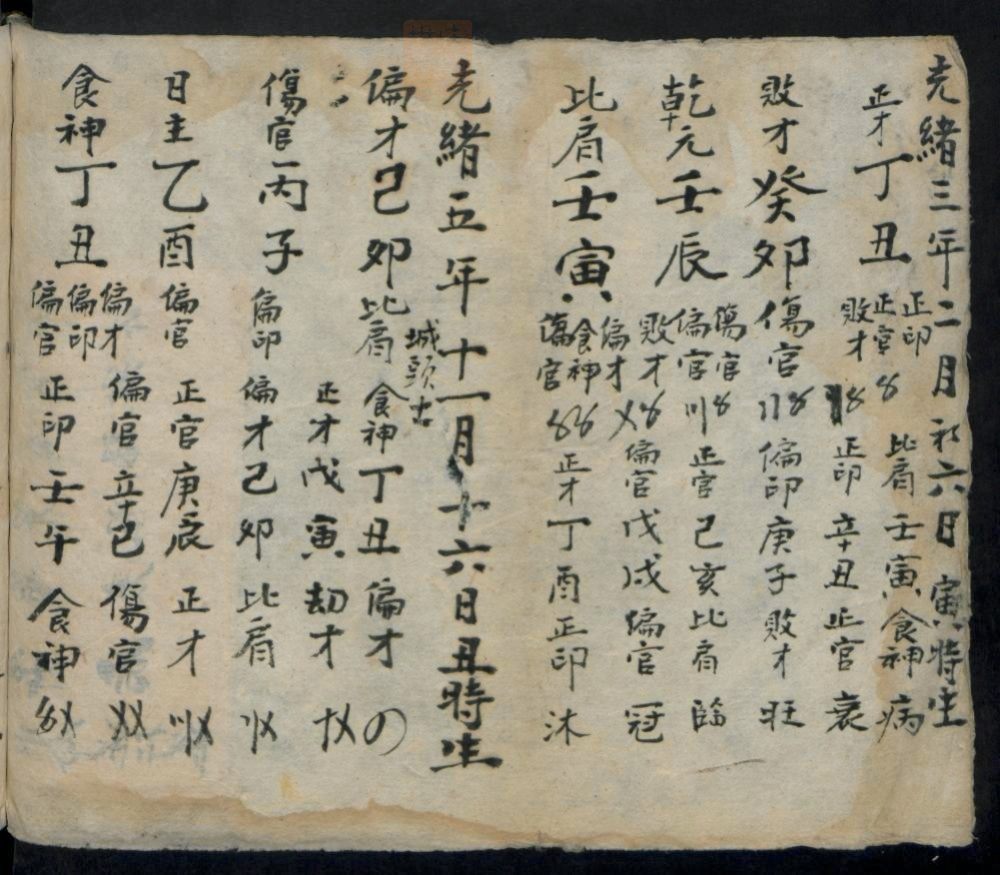 光緒三年二月初六日寅時生
正才丁丑 正印 正官 敗才 〥
比肩壬寅食神病
〥 正印辛丑正官衰
敗才癸卯傷官〢〥偏印庚子敗才旺
乾元壬辰 傷官 偏官 〥 〣正官己亥比肩臨
敗才 偏才 〥 〤偏官戊戌偏官冠
比肩壬寅 食神 傷官 〥〥正才丁酉正印沐
光緒五年十一月十六日丑時生
城頭土
偏才己卯比肩食神丁丑偏才
正才戊寅劫才〸〤
傷官丙子偏印偏才己卯比肩〢〤
日主乙酉偏官正官庚辰正才〣〤
偏才 偏官辛巳傷官〤〤
食神丁丑 偏印 偏官 正印壬午食神〥〤